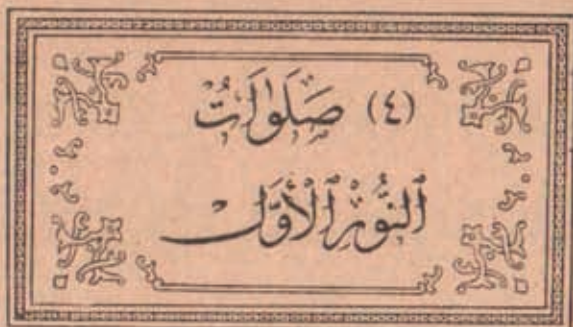 (٤) صَلَوَاتُ
النُّورِ الْأَوَّل